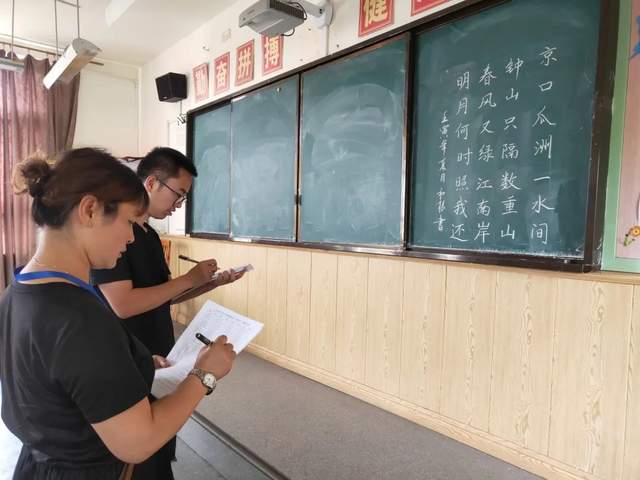 勤奋拼搏
健
京口瓜洲一水间
钟山只隔数重山
春风又绿江南岸
明月何时照我还
壬寅年夏月 书